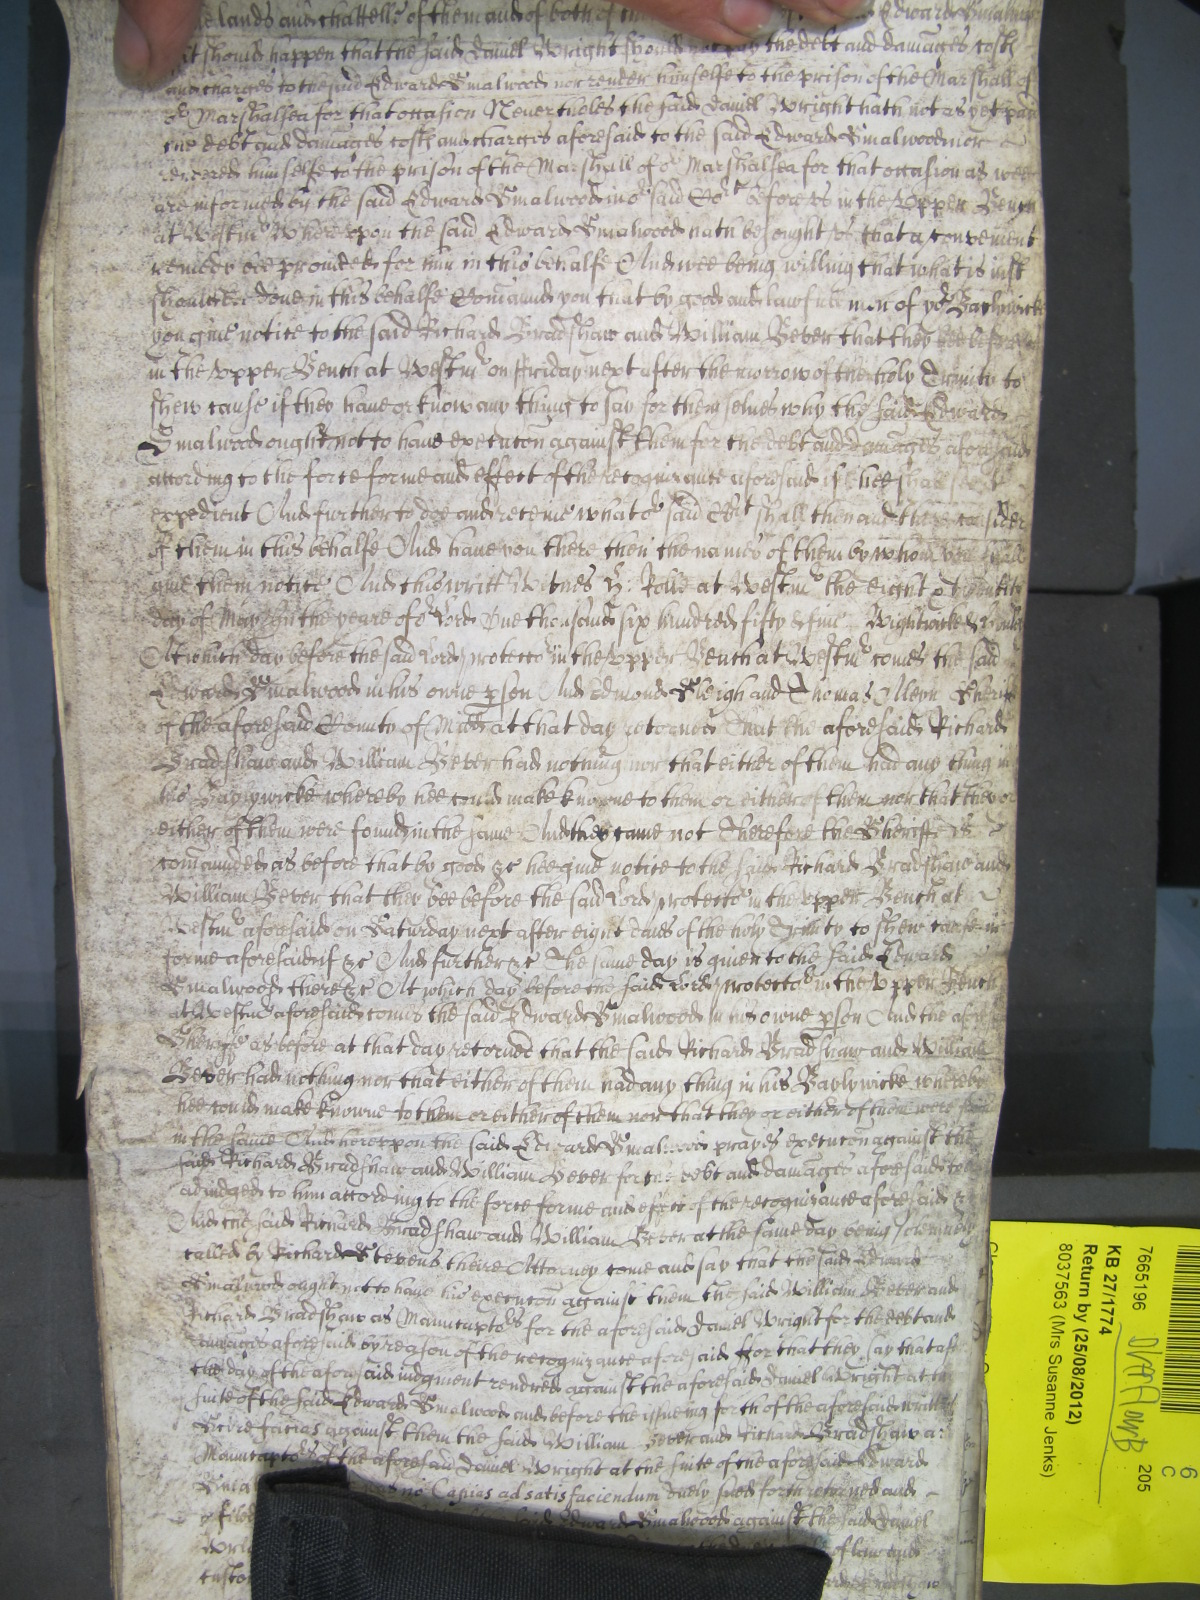 lands and chattells of them and of both of Edward Smalwood
it should happen that the said Daniel Wright should not pay the debt and damages costs
and charges to the said Edward Smalwood nor render himselfe to the prison of the Marshall of
or Marshalsea for that occasion Neverthelesse the said Daniel Wright hath not as yet paid
the debt and damages costs and charges aforesaid to the said Edward Smalwood nor
rendered himselfe to the prison of the Marshall of or Marshalsea for that occasion as wee
are informed by the said Edward Smalwood in or said Cort before us in the Upper Bench
at Westmr Whereupon the said Edward Smalwood hath besought us that a convenient
remedy bee provided for him in this behalfe And wee being willing that what is just
should bee done in this behalfe Comaund you that by good and lawfull men of yor Baylywicke
you give notice to the said Richard Bradshaw and William Bever that they bee before us
in the Upper Bench at Westmr on Friday next after the morrow of the holy Trinity to
shew cause if they have or know any thing to say for themselves why the said Edward
Smalwood ought not to have execucon against them for the debt and damages aforesaid
according to the force forme and effect of the recognizance aforesaid if hee shall see
expedient And further to doe and receive what or said Cort shall then and there consider
of them in this behalfe And have you there then the names of them by whom you shall
give them notice And this writt Witnes H: Rolle at Westmr the eight & twentith
day of May in the yeare of or Lord One thousand six hundred fifty & five Wightwicke
At which day before the said Lord protector in the upper Bench at Westmr comes the said
Edward Smalwood in his owne pson And Edmond Sleigh and Thomas Alleyn Sheriffe
of the aforesaid County of Midd at that day retorned That the aforesaid Richard
Bradshaw and William Bever had nothing nor that either of them had any thing in
his Baylywicke whereby hee could make knowne to them or either of them nor that they or
either of them were found in the same And they came not Therefore the Sheriffe is
comaunded as before that by good &c hee give notice to the said Richard Bradshaw and
William Bever that they bee before the said Lord protector in the upper Bench at
Westmr aforesaid on Saturday next after eight daies of the holy Trinity to shew cause in
forme aforesaid if &c And further &c The same day is given to the said Edward
Smalwood there &c At which day before the said Lord protector in the Upper Bench
at Westmr aforesaid comes the said Edward Smalwood in his owne pson And the afore
Sheriffe as before at that day retorned that the said Richard Bradshaw and William
Bever had nothing nor that either of them had any thing in his Baylywicke whereby
hee could make knowne to them or either of them nor that they or either of them were found
in the same And hereupon the said Edward Smalwood prayes execucon against the
said Richard Bradshaw and William Bever for the debt and damages aforesaid to be
adiudged to him according to the force forme and effect of the recognizance aforesaid &c
And the said Richard Bradshaw and William Bever at the same day being solemnely
called by Richard Stevens theire Attorney come and say that the said Edward
Smalwood ought not to have his execucon against them the said William Bever and
Richard Bradshaw as Manucaptors for the aforesaid Daniel Wright for the debt and
damages aforesaid by reason of the recognizance aforesaid For that they say that after
the day of the aforesaid iudgment rendred against the aforesaid Daniel Wright at the
suite of the said Edward Smalwood and before the issueing forth of the aforesaid writt of
Scire facias against them the said William Bever and Richard Bradshaw as
Manucaptors of the aforesaid Daniel Wright at the suite of the aforesaid Edward
Smal no Capias ad satisfaciendum duely sued forth retorned and
filed said Edward Smalwood against the said Daniel
Wrig of law and
custom
7665196
KB 27/1774
Return by (25/08/2012)
8037563 (Mrs Susanne Jenks)
205
6
C